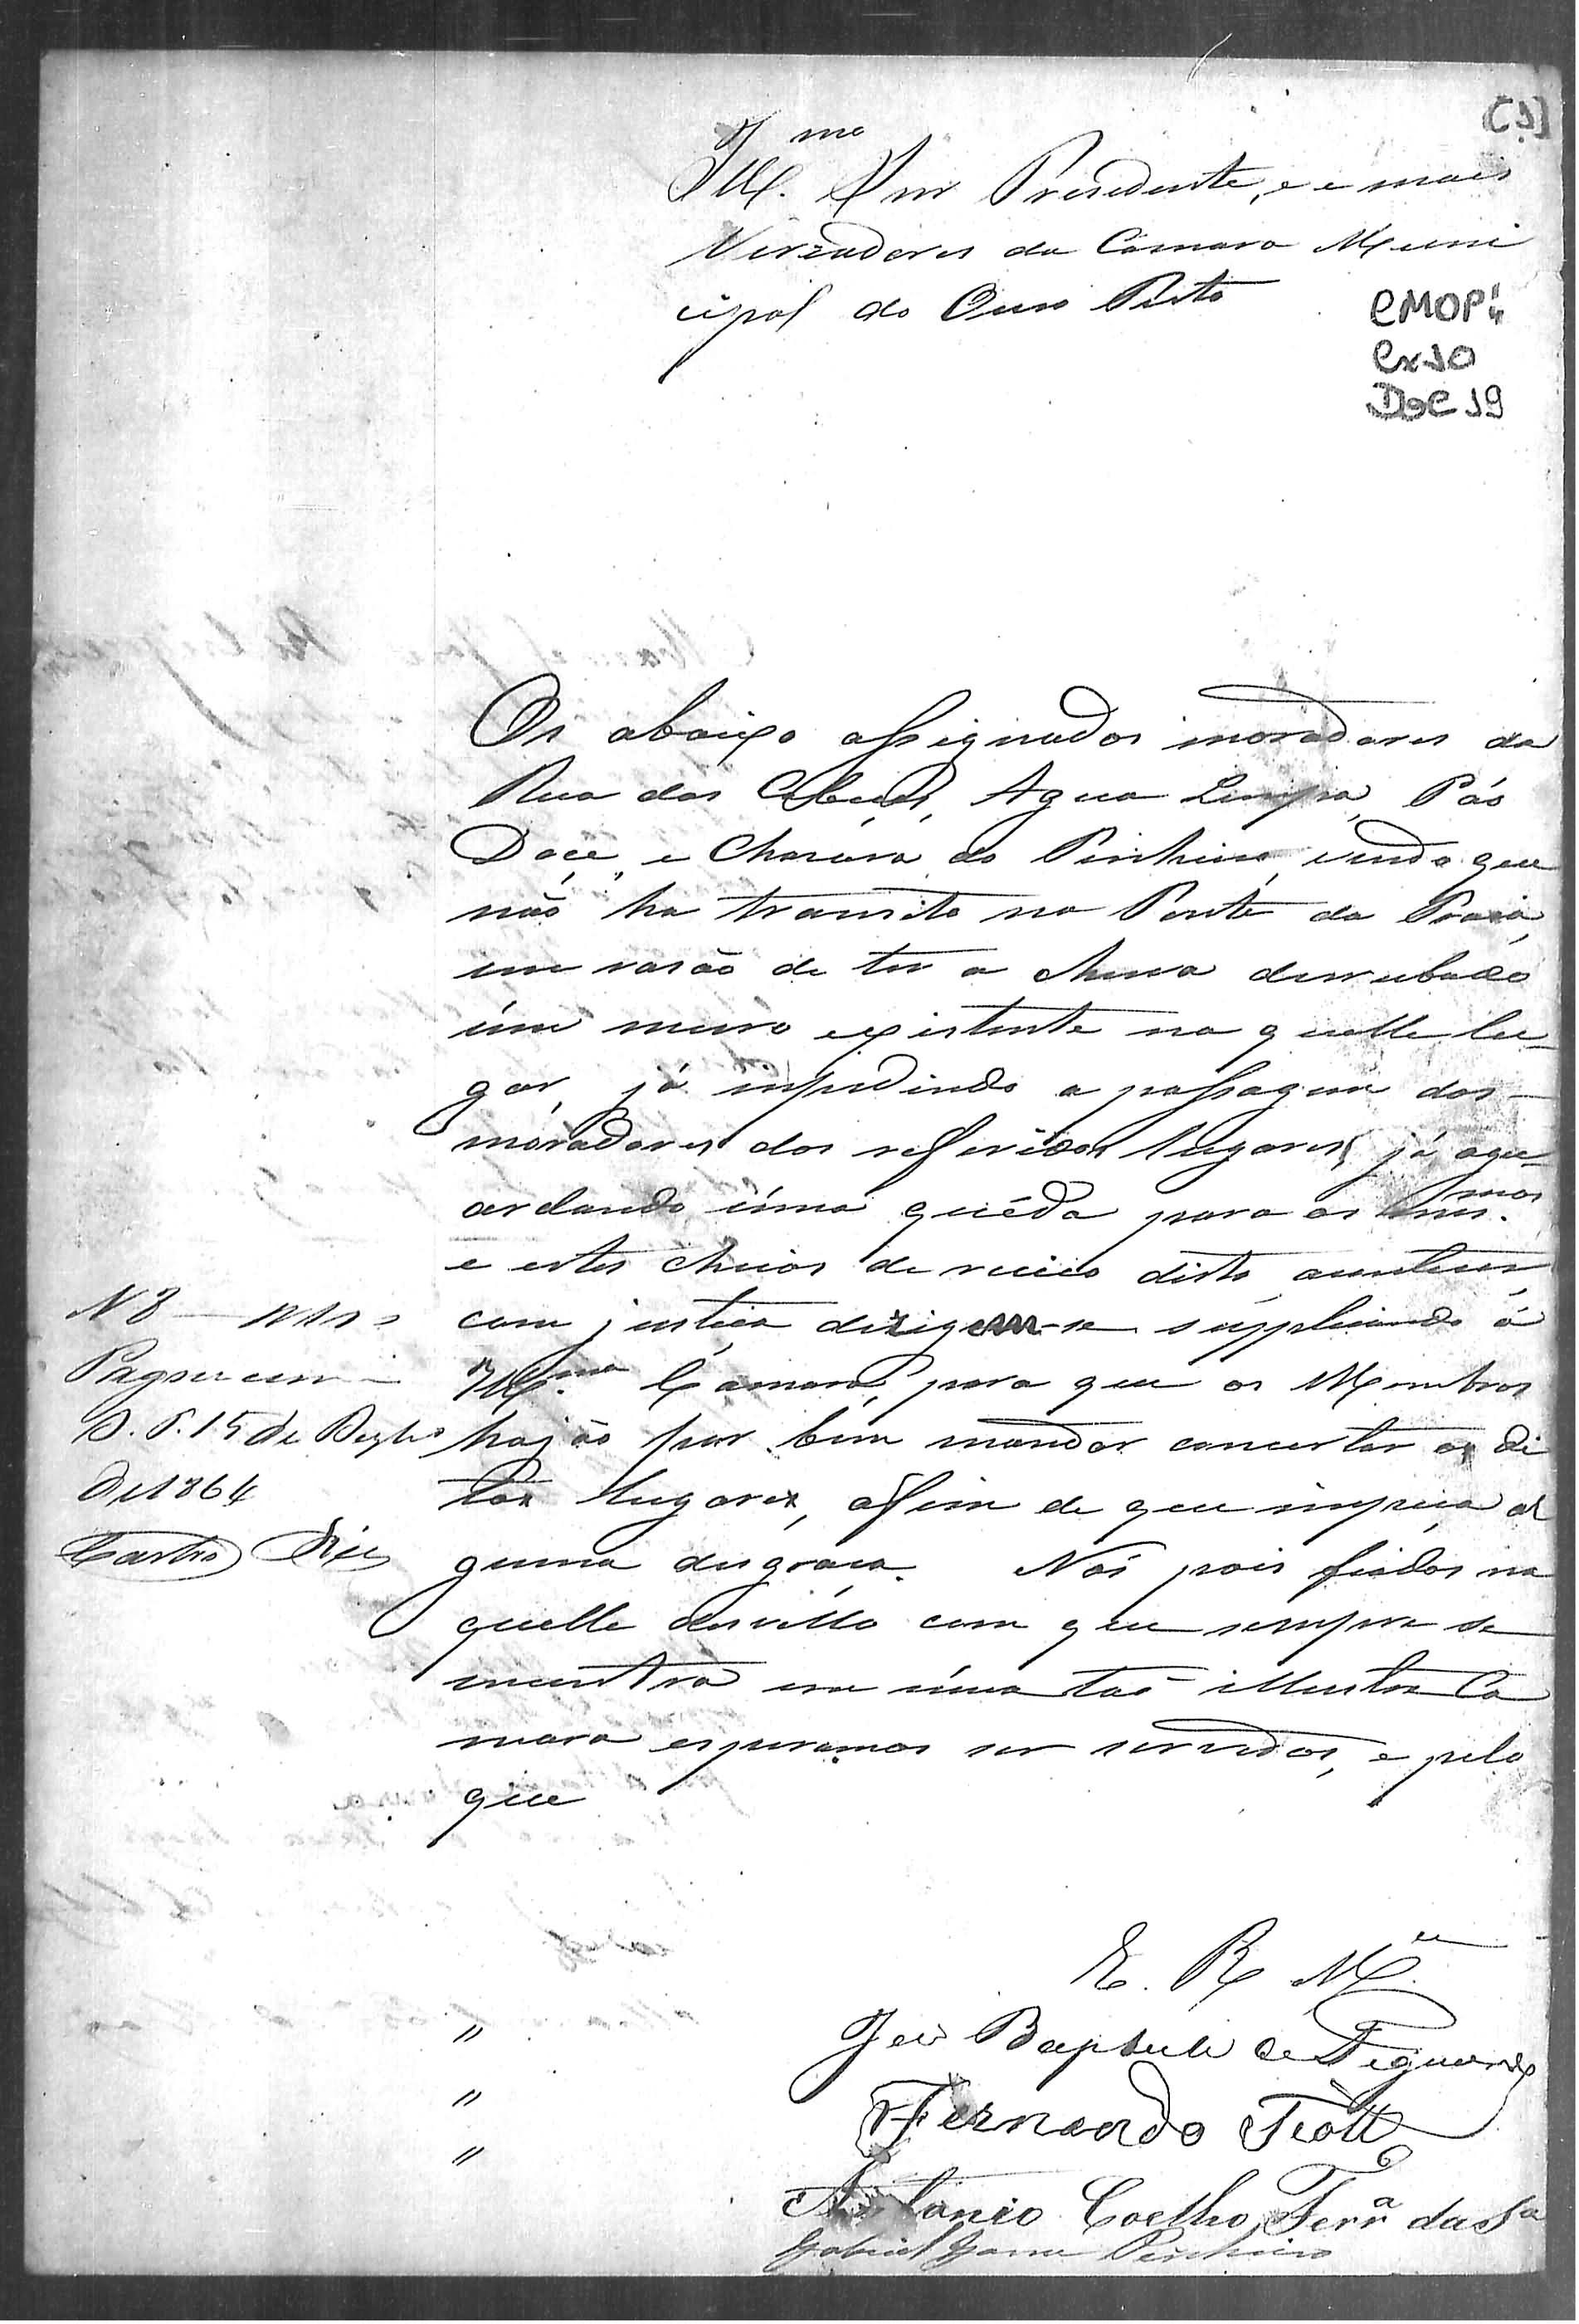 [1]
Ill.mo Snr Presidente, e e mais
Vereadores da Camara Muni
cipal do Ouro Preto
CMOP
Cx 10
Doc 19
Os abaixo assignados moradores da
Rua das Cabeças, Agua Limpa, Pás
Doce, e Chacara do Pinheiro, vendo que
não ha transito na Ponte da Praia,
em rasão de ter a chuva derrubado
úm muro existente na quelle lu-
gar, já impedindo a passagem dos
moradores dos referidos lugares, já agu-
ardando úma quéda para os mmos.
e estes cheios de receio disto,
com justiça dirigem-se supplicando á
Ill.ma Camara, para que os Membros
hajão por bem mandar concertar os di
tos lugares, afim de que impeça al
guma desgraça. Nós pois fiados na
quelle desvello com que sempre se
encontra em úma tão illustre Ca
mara esperamos ser servidos, e pelo
que
N 8
D. P. 15 de Dezbro
de 1864
Castro
E. R. M.ce
José Baptista de Figueredo
Fernando
Antonio Coelho Ferra da Sa
Gabriel Pinheiro